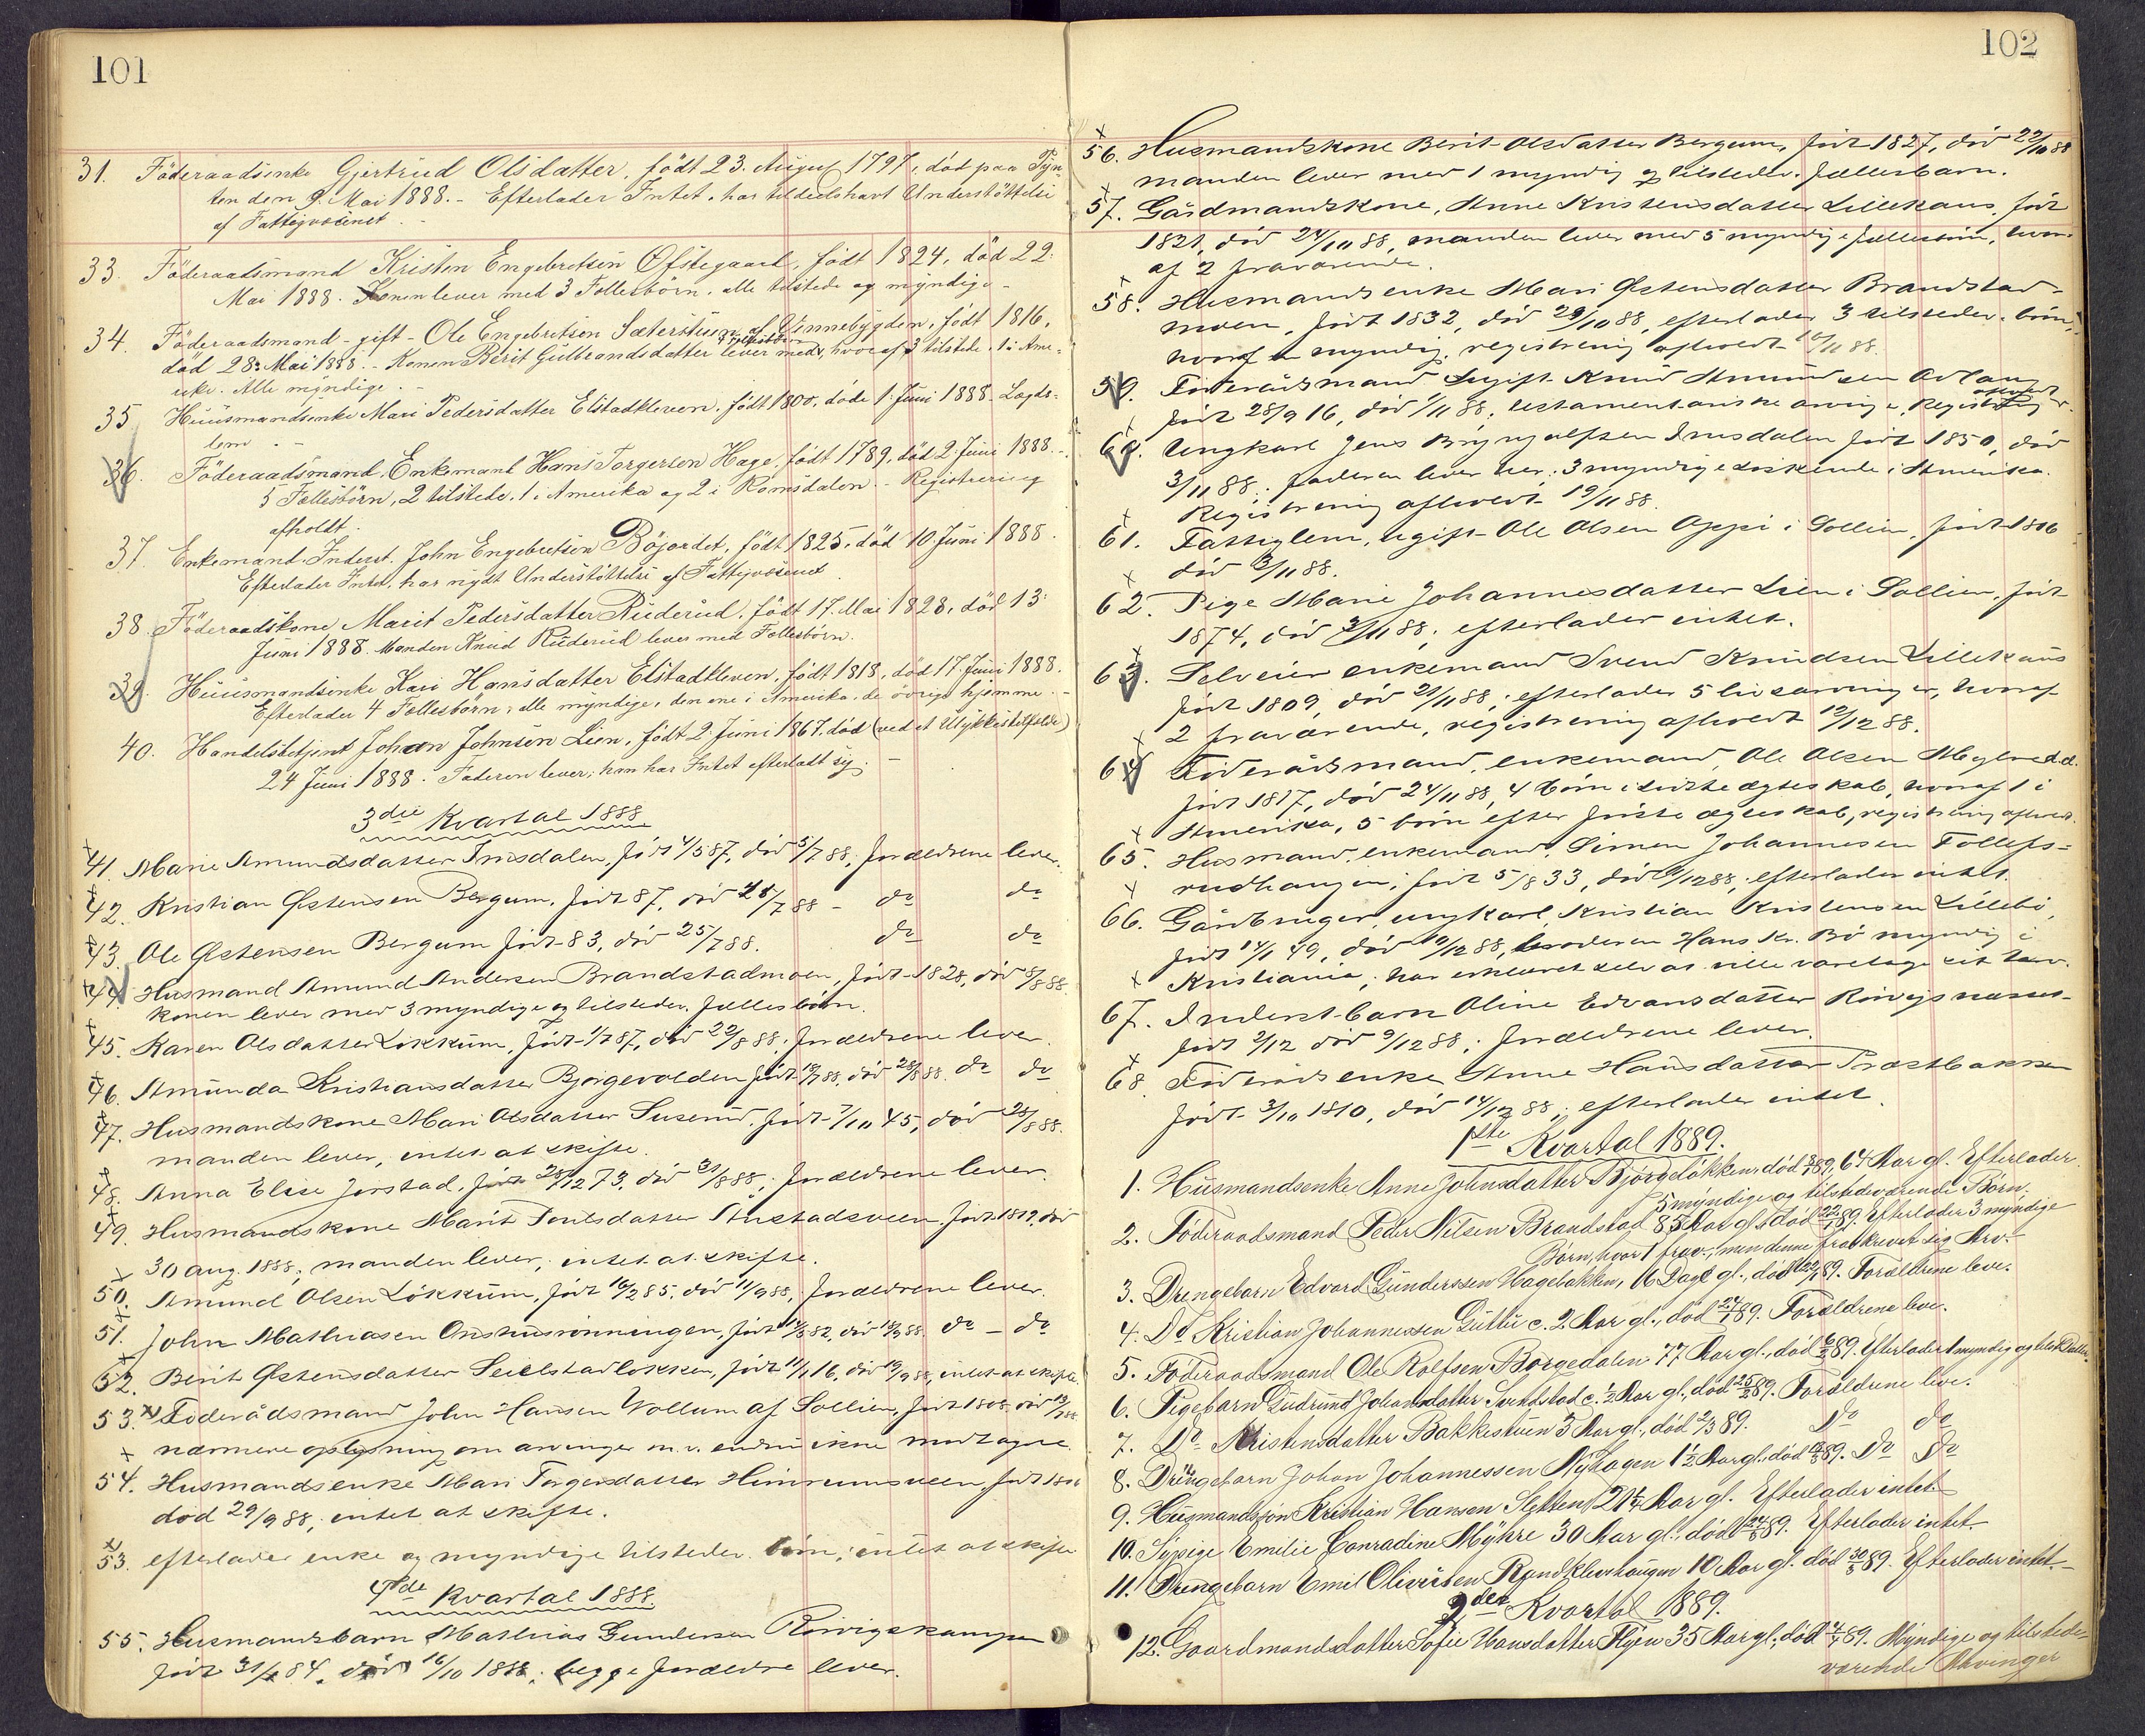 101
31. Föderaadsenke Gjertrud Olsdatter, född 23. August 1797, død paa Tyn-
ten den 9. Mai 1888. - Efterlader Intet, har tildeelshavt Understöttelse
af Fattigvæsenet. -
33. Föderaadsmand Kristen Engebretsen Ofstegaard, født 1824, död 22.
Mai 1888. Konen lever med 3 Fællesbörn, alle tilstede og myndige. -
34. Föderaadsmand - gift - Ole Engebretsen Sæterstuen af Vinnebygden, født 1816,
död 28. Mai 1888. - Konen Berit Gulbrandsdatter lever med 4 Fællesbörn, hvoraf 3 tilstede, 1 i Ame-
rika. Alle myndige. -
35 Huusmandsenke Mari Pedersdatter Elstadkleven, født 1800, döde 1. Juni 1888. Lægds-
lem - -
36. Föderaadsmand, Enkemand Hans Torgersen Hage, født 1789, död 2. Juni 1888. -
5 Fællesbörn, 2 tilstede, 1 i Amerika og 2 i Romsdalen. - Registrering
afholdt.
37. Enkemand Inderst. John Engebretsen Böjordet, født 1825, död 10. Juni 1888.
Efterlader Intet, har nydt Understöttelse af Fattigvæsenet.
38. Föderaadskone Marit Pedersdatter Ruderud, født 17. Mai 1828, död 13.
Juni 1888. Manden Knud Ruderud lever med Fællesbörn.
39. Huusmandsenke Kari Hansdatter Elstadkleven, født 1818, död 17. Juni 1888.
Efterlader 4 Fællesbörn, alle myndige, den ene i Amerika, de övrige hjemme. -
40. Handelsbetjent Johan Johnsen Lien, født 2. Juni 1867, död (ved et Ulykkestilfælde)
24 Juni 1888. Faderen lever; han har Intet efterladt sig. -
3die Kvartal 1888
41. Marie Amundsdatter Imsdalen, født 4/5 87, död 5/7 88, forældrene lever.
42. Kristian Østensen Bergum, født 87, död 28/7 88 - do do
43. Ole Østensen Bergum født 83, död 25/7 88. do do
44. Husmand Amund Andersen Brandstadmoen, født 1828, död 8/8 88.
konen lever med 3 myndige og tilstedev. fællesbörn.
45. Karen Olsdatter Lökkum, født 1/7 87, död 22/8 88; forældrene lever.
46. Amunda Kristiansdatter Bjørgevolden født 19/7 88, död 28/8 88. do do
47. Husmandskone Mari Olsdatter Suserud, født 7/10 45, död 28/8 88.
manden lever, intet at skifte.
48. Anna Elise Jorstad, født 28/12 73, död 31/8 88; forældrene lever.
49. Husmandskone Marit Poulsdatter Anstadsveen, født 1819, död
30 aug. 1888; manden lever, intet at skifte.
50. Amund Olsen Lökkum, født 16/2 85, död 11/9 88, forældrene lever.
51. John Mathiasen Onshusrönningen, født 12/3 82, död 18/9 88. do - do
52. Berit Østensdatter Seielstadlökken, født 11/1 16, död 19/9 88, intet at skifte.
53. Föderådsmand John Hansen Vollum af Sollien, født 1808, död 12/7 88
nærmere oplysning om arvinger m.v. endnu ikke modtagne.
54. Husmandsenke Mari Torgersdatter Himrumsveen, født 1806
död 29/9 88, intet at skifte.
53. efterlader enke og myndige tilstedev. börn; intet at skifte
4de Kvartal 1888.
55. Husmandsbarn Mathias Gundersen Rövigskampen
født 31/1 84, död 16/10 1888; begge forældre lever.
102
56. Husmandskone Berit Olsdatter Bergum, født 1827, död 22/10 88
manden lever med 1 myndig og tilstedev. fællesbarn.
57. Gårdmandskone, Anne Kristensdatter Lillehaus, født
1821, död 24/10 88, manden lever med 5 myndige fællesbörn, hvor-
af 2 fraværende.
58. Husmandsenke Mari Østensdatter Brandstad-
moen, født 1832, död 29/10 88, efterlader 3 tilstedev. börn,
hvoraf en myndig, registrering afholdt 10/11 88.
59. Föderådsmand ugift Knud Amundsen
født 28/9 16, död 1/11 88; testamentariske arvinger, Registrering afholdt
60. Ungkarl Jens Brynjulfsen Imsdalen født 1850, död
3/11 88; faderen lever her; 3 myndige søskende i Amerika.
Registrering afholdt 19/11 88.
61. Fattiglem, ugift Ole Olsen Oppi i Sollien, født 1806
död 3/11 88.
62. Pige Marie Johannesdatter Lien i Sollien, født
1874, död 3/11 88; efterlader intet.
63. Selveier enkemand Svend Knudsen Lillehaus
født 1809, död 21/11 88; efterlader 5 livsarvinger, hvoraf
2 fraværende, registrering afholdt 12/12 88.
64 Föderådsmand, enkemand, Ole Olsen
født 1817, död 24/11 88, 4 börn i sidste ægteskab, hvoraf 1 i
Amerika, 5 börn efter förste ægteskab, registrering afholdt.
65. Husmand, enkemand, Simen Johannesen Tollefs-
rudhaugen, født 5/8 33, död 9/12 88, efterlader intet.
66. Gårdbruger, ungkarl, Kristian Kristensen Lillebö,
født 14/1 49, död 10/12 88, broderen Hans Kr. Bö myndig i
Kristiania; har erklæret selv at ville varetage sit tarv.
67. Inderst-barn Oline Edvansdatter
født 2/12 död 9/12 88; forældrene lever.
68. Föderådsenke Anne Hansdatter Præstbakken
født 3/10 1810, död 14/12 88; efterlader intet.
1ste Kvartal 1889.
1. Husmandsenke Anne Johnsdatter Bjørgeløkken, død 3/1 89, 64 Aar gl. Efterlader
5 myndige og tilstedeværende Børn.
2. Føderaadsmand Peder Nilsen Brandstad 85 Aar gl., død 22/1 89. Efterlader 3 myndige
Børn, hvor 1 frav., men denne fraskrevet sig Arv. -
3. Drengebarn Edvard Gunderssen Hagebakken, 16 Dage gl., død 22/1 89. Forældrene leve.
4. Do Kristian Johannessen Guttu c. 2 Aar gl., død 24/1 89. Forældrene leve.
5. Føderaadsmand Ole Rolfsen Borgedalen 77 Aar gl., død 6/2 89. Efterlader 1 myndig og tilst. Datter.
6. Pigebarn Gudrund Johansdatter Svendstad c. 1/2 Aar gl., død 25/2 89. Forældrene leve.
7. Do Kristensdatter Bakkestuen 3 Aar gl., død 2/3 89. Do Do
8. Drengebarn Johan Johannessen Nyhagen 1 1/2 Aar gl., død 4/3 89. Do Do
9. Husmandssøn Kristian Hansen Sletten 21 Aar gl. Efterlader intet.
10. Sypige Emilie Conradine Myhre 30 Aar gl., død 24/3 89. Efterlader intet.
11. Drengebarn Emil Oliversen Rundklevhaugen 10 Aar gl. død 30/3 89. Efterlader intet. -
2det Kvartal 1889.
12. Gaardmandsdatter Sofie Hansdatter Flyen 35 Aar gl., død 4/4 89. Myndige og tilstede-
værende Arvinger